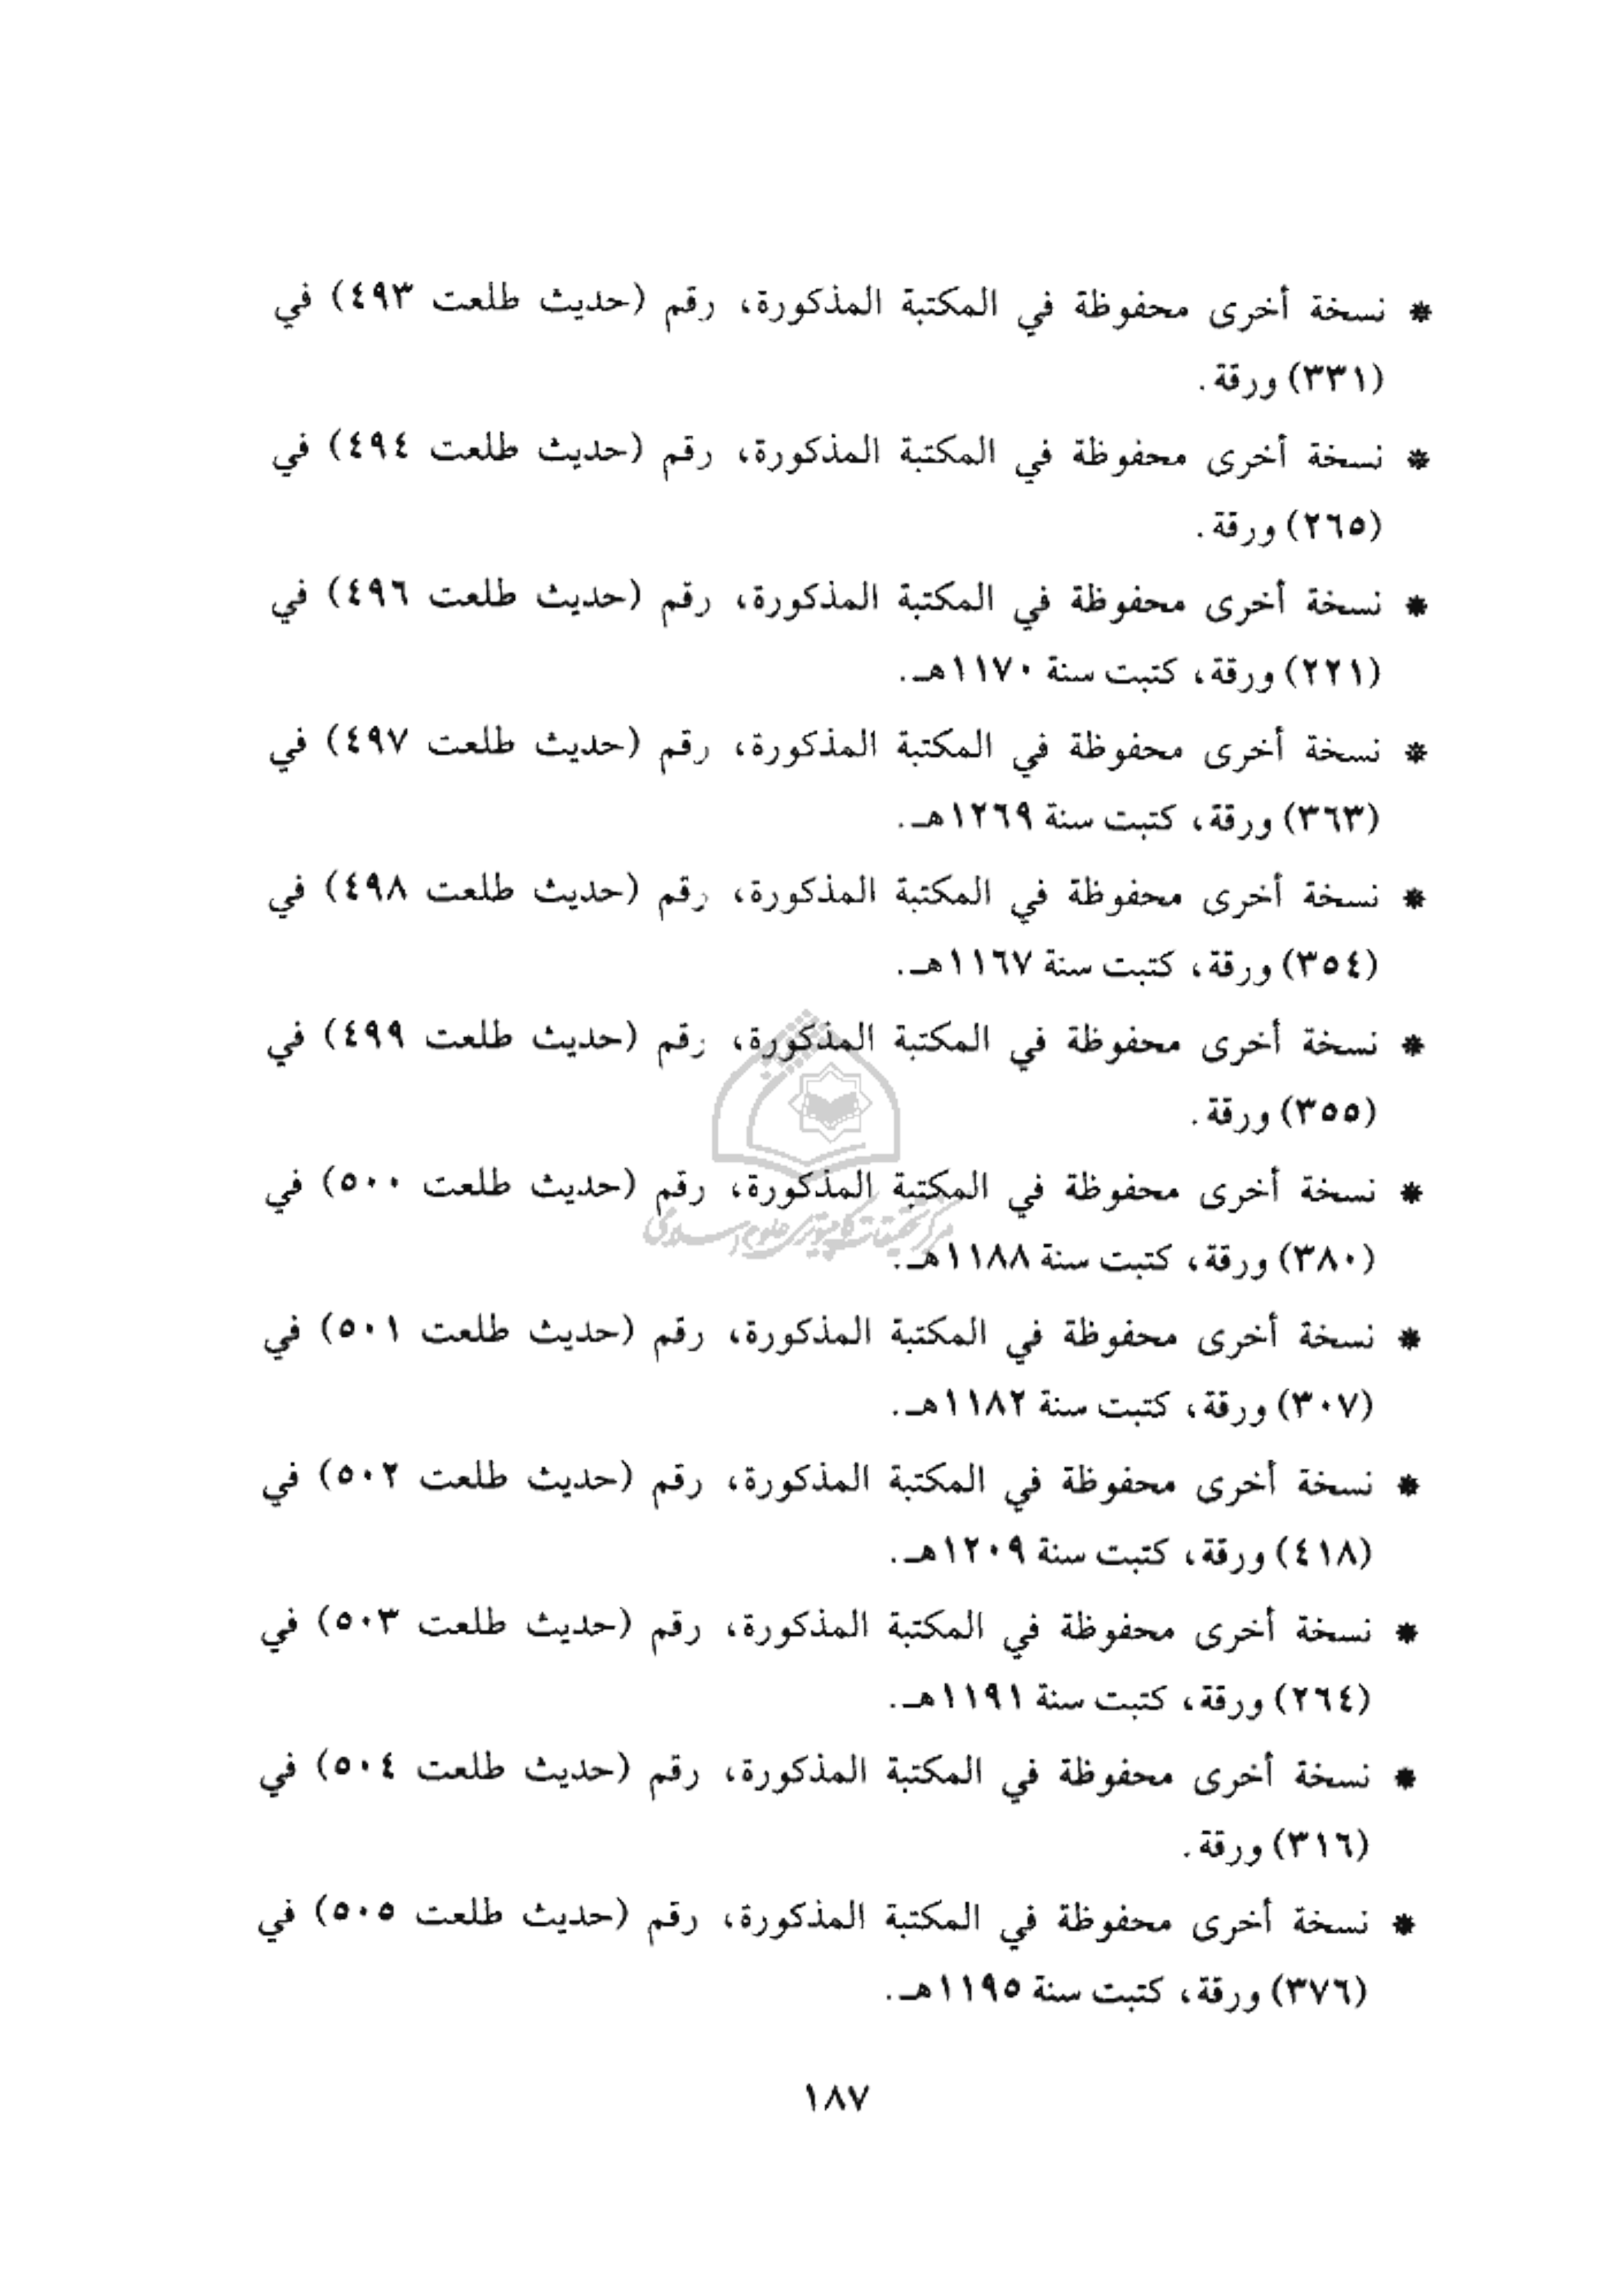 * نسخة أخرى محفوظة في المكتبة المذكورة، رقم (حديث طلعت ٤٩٣) في
(٣٣١) ورقة.
* نسخة أخرى محفوظة في المكتبة المذكورة، رقم (حديث طلعت ٤٩٤) في
(٢٦٥) ورقة.
* نسخة أخرى محفوظة في المكتبة المذكورة، رقم (حديث طلعت ٤٩٦) في
(٢٢١) ورقة، كتبت سنة ١١٧٠هـ.
* نسخة أخرى محفوظة في المكتبة المذكورة، رقم (حديث طلعت ٤٩٧) في
(٣٦٣) ورقة، كتبت سنة ١٢٦٩هـ.
* نسخة أخرى محفوظة في المكتبة المذكورة، رقم (حديث طلعت ٤٩٨) في
(٣٥٤) ورقة، كتبت سنة ١١٦٧هـ.
* نسخة أخرى محفوظة في المكتبة المذكورة، رقم (حديث طلعت ٤٩٩) في
(٣٥٥) ورقة.
* نسخة أخرى محفوظة في المكتبة المذكورة، رقم (حديث طلعت ٥٠٠) في
مرکز تحقیقات کامپیوتری علوم اسلامی
(٣٨٠) ورقة، كتبت سنة ١١٨٨هـ.
* نسخة أخرى محفوظة في المكتبة المذكورة، رقم (حديث طلعت ٥٠١) في
(٣٠٧) ورقة، كتبت سنة ١١٨٢هـ.
* نسخة أخرى محفوظة في المكتبة المذكورة، رقم (حديث طلعت ٥٠٢) في
(٤١٨) ورقة، كتبت سنة ١٢٠٩هـ.
* نسخة أخرى محفوظة في المكتبة المذكورة، رقم (حديث طلعت ٥٠٣) في
(٢٦٤) ورقة، كتبت سنة ١١٩١هـ.
* نسخة أخرى محفوظة في المكتبة المذكورة، رقم (حديث طلعت ٥٠٤) في
(٣١٦) ورقة.
* نسخة أخرى محفوظة في المكتبة المذكورة، رقم (حديث طلعت ٥٠٥) في
(٣٧٦) ورقة، كتبت سنة ١١٩٥هـ.
١٨٧